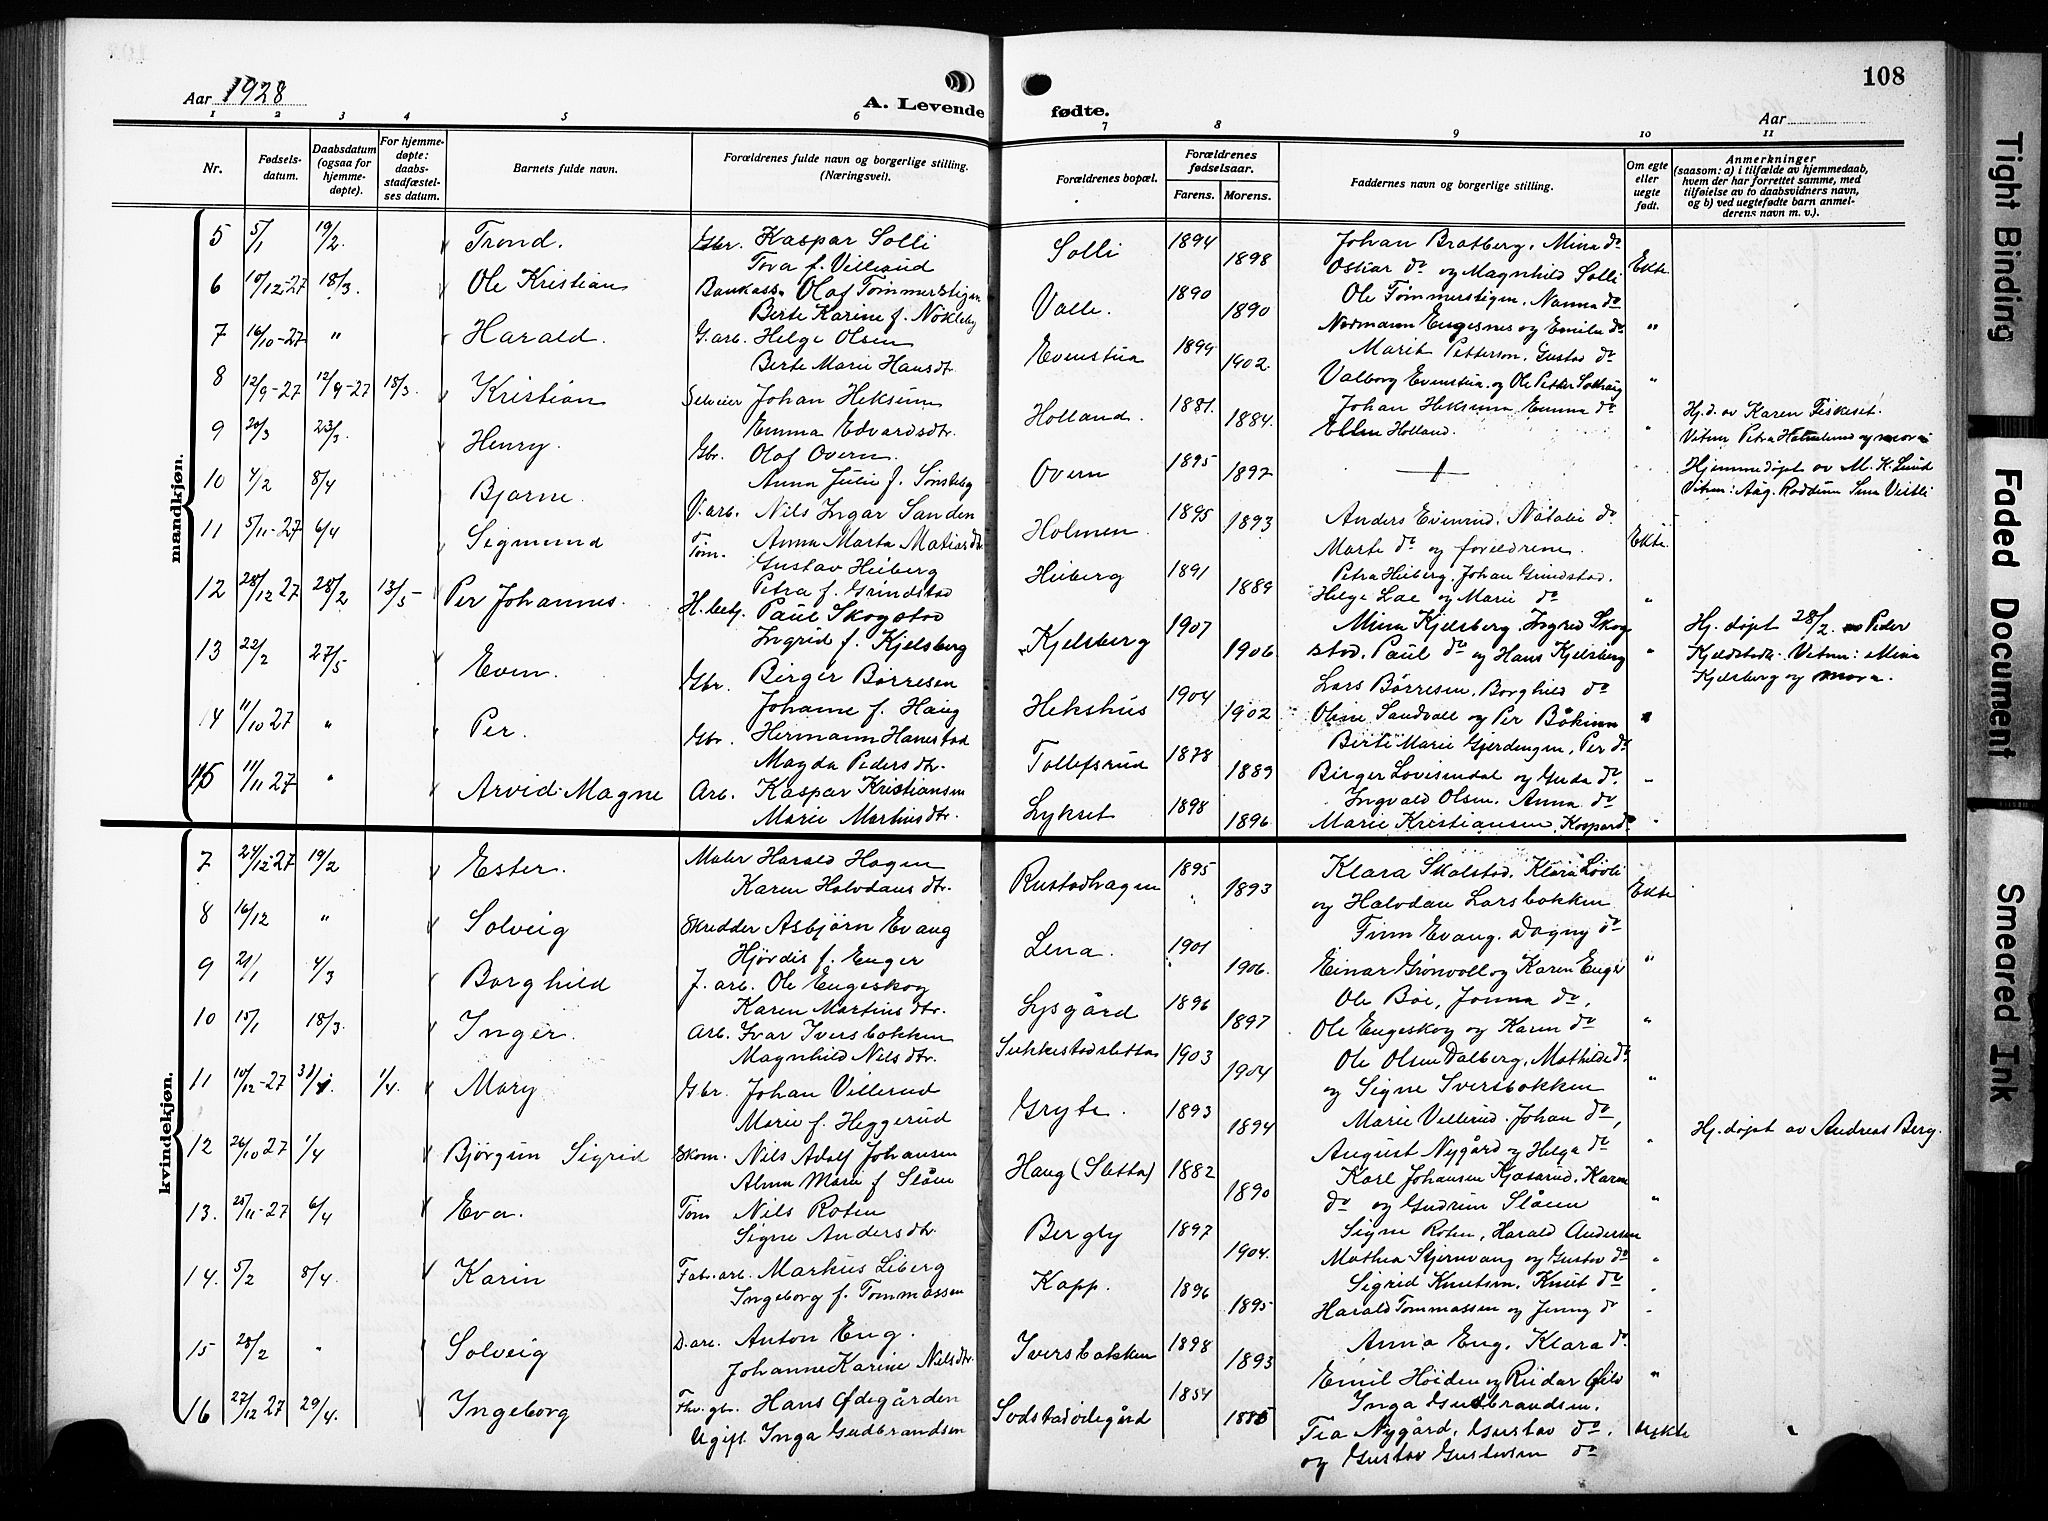 108
Aar 1928
A. Levende fødte.
Aar
1 2 3 4 5 6 7 8 9 10 11
Nr. Fødselsdatum. Daabsdatum (ogsaa for hjemmedøpte). For hjemmedøpte: daabsstadfæstelses datum. Barnets fulde navn. Forældrenes fulde navn og borgerlige stilling. (Næringsvei). Forældrenes bopæl. Forældrenes fødselsaar. Farens. Morens. Faddernes navn og borgerlige stilling. Om egte eller uegte født. Anmerkninger (saasom: a) i tilfælde av hjemmedaab, hvem der har forrettet samme, med tilføielse av to daabsvidners navn, og b) ved uegtefødte barn anmelderens navn m. v.).
mandkjøn.
5 5/1 19/2. Trond. Gbr. Kaspar Solli Solli 1894 Johan Bratberg, Mina do
Tova f. Villerud 1898 Oskar do og Magnhild Solli Ekte
6 10/12-27 18/3. Ole Kristian Olaf Tømmerstigen Valle. 1890 Ole Tømmerstigen, Nanna do
Berte Karine f. Nøkleby 1890 Normann Engesnes og Emilie do "
7 16/10-27 " Harald. G.arb. Helge Olsen Evenstua 1894 Marit Petterson, Gustav do
Berte Marie Hansdtr. 1902. Valborg Evenstua og Ole Petter "
8 12/9-27 12/9-27 18/3. Kristian Selveier Johan Heksum Holland. 1881. Johan Heksum Emma do Hj.d. av Karen Fiskeset.
Emma Edvardsdtr. 1884. Ellen Holland. " Vitner Petra og mora
9 20/3 23/3. Henry. Gbr. Olaf Overn. Overn 1895 Hjemmedøpt av M. K. Lund
Anna Julie f. Sønsteby 1897 Vitner: Aug. Roddum
10 4/2 8/4 Bjarne. V.arb. Nils Ingar Sanden Holmen. 1895 Anders Evenrud, Natalie do
Anna Marta Matiasdtr 1893 Marte do og foreldrene. Ekte
11 5/11-27 6/4 Sigmund Tøm. Gustav Heiberg Heiberg 1891 Petra Heiberg, Johan Grindstad.
Petra f. Grindstad 1889 Helge Lae og Marie do "
12 28/12 27 28/2 13/5 Per Johannes. Paul Skogstad Kjelsberg 1907 Mina Kjelsberg, Ingrid Skog Hj. døpt 28/2. Peder
Ingrid f. Kjelsberg 1906 stad, Paul do og Hans Kjelsberg " Kjeldstadli. Vitner: Mina
13 22/2 27/5 Even. Gbr. Birger Børresen Hekshus 1904 Lars Børresen, Borghild do Kjelsberg og mora.
Johanne f. Haug 1902 Oline Sandvoll og Per
14 11/10 27 " Per. Gbr. Hermann Hanestad Tollefsrud 1878 Berte Marie Gjerdingen, Per do
Magda Pedersdtr. 1889 Birger Lovisendal og Gerda do "
15 11/11 27 " Arvid Magne Arb. Kaspar Kristiansen Lykset 1898 Ingvald Olsen, Anna do
Marie Martinsdtr. 1896 Marie Kristiansen, Kaspar do
kvindekjøn.
7 24/12-27 19/2 Ester. Maler Harald Hagen Rustadhagen 1895 Klara Skolstad, Klara Løvli
Karen Halvdansdtr. 1893 og Halvdan Larsbakken Ekte
8 16/12 " Solveig Skredder Asbjørn Evang Lena. 1901 Finn Evang, Dagny do
Hjørdis f. Enger 1906. Einar Grønvoll og Karen Enger "
9 21/1 4/3 Borghild J. arb. Ole Engeskog Lysgård 1896 Ole Bøe, Jonna do,
Karen Martinsdtr. 1897 Ole Engeskog og Karen do "
10 15/1 18/3. Inger. Arb. Ivar Iversbakken Sukkestadsletta 1903 Ole Olsen Dalberg, Mathilde do
Magnhild Nilsdtr. 1904 og Signe Iversbakken "
11 10/12-27 1/4. Mary Gbr. Johan Villerud Gryte. 1893 Marie Villerud, Johan do,
Marie f. Heggerud 1894 August Nygård og Helga do " Hj. døpt av Andreas Berg.
12 26/10 27 1/4 Bjørgun Sigrid Skom. Nils Adolf Johansen Haug (Sletta) 1882 Karl Johansen Kjøsrud, Karen
Alma Marie f Slåen 1890 do og Gudrun Slåen "
13. 25/11-27 6/4 Eva. Tøm Nils Roten Bergly 1897 Signe Roten, Harald Andersen
Signe Andersdtr. 1904. Mathea Stjernvang og Gustav do "
14. 5/2 8/4. Karin Fab.arb. Markus Liberg Kapp. 1896 Sigrid Knutsen, Knut do
Ingeborg f. Tommassen 1895 Harald Tommassen og Jenny do "
15 28/2 " Solveig D.arb. Anton Eng. Iversbakken 1898 Anna Eng, Klara do
Johanne Karine Nilsdtr. 1893 Emil Høiden og Reidar "
16 27/12 27 29/4. Ingeborg Fhv. gbr. Hans Ødegården Sodstadødegård 1854 Inga Gudbrandsen,
Ugift. Inga Gudbrandsen 1885 Tea Nygård, Gustav do, uekte
og Gustav Gustavsen do
Tight Binding
Faded Document
Smeared Ink